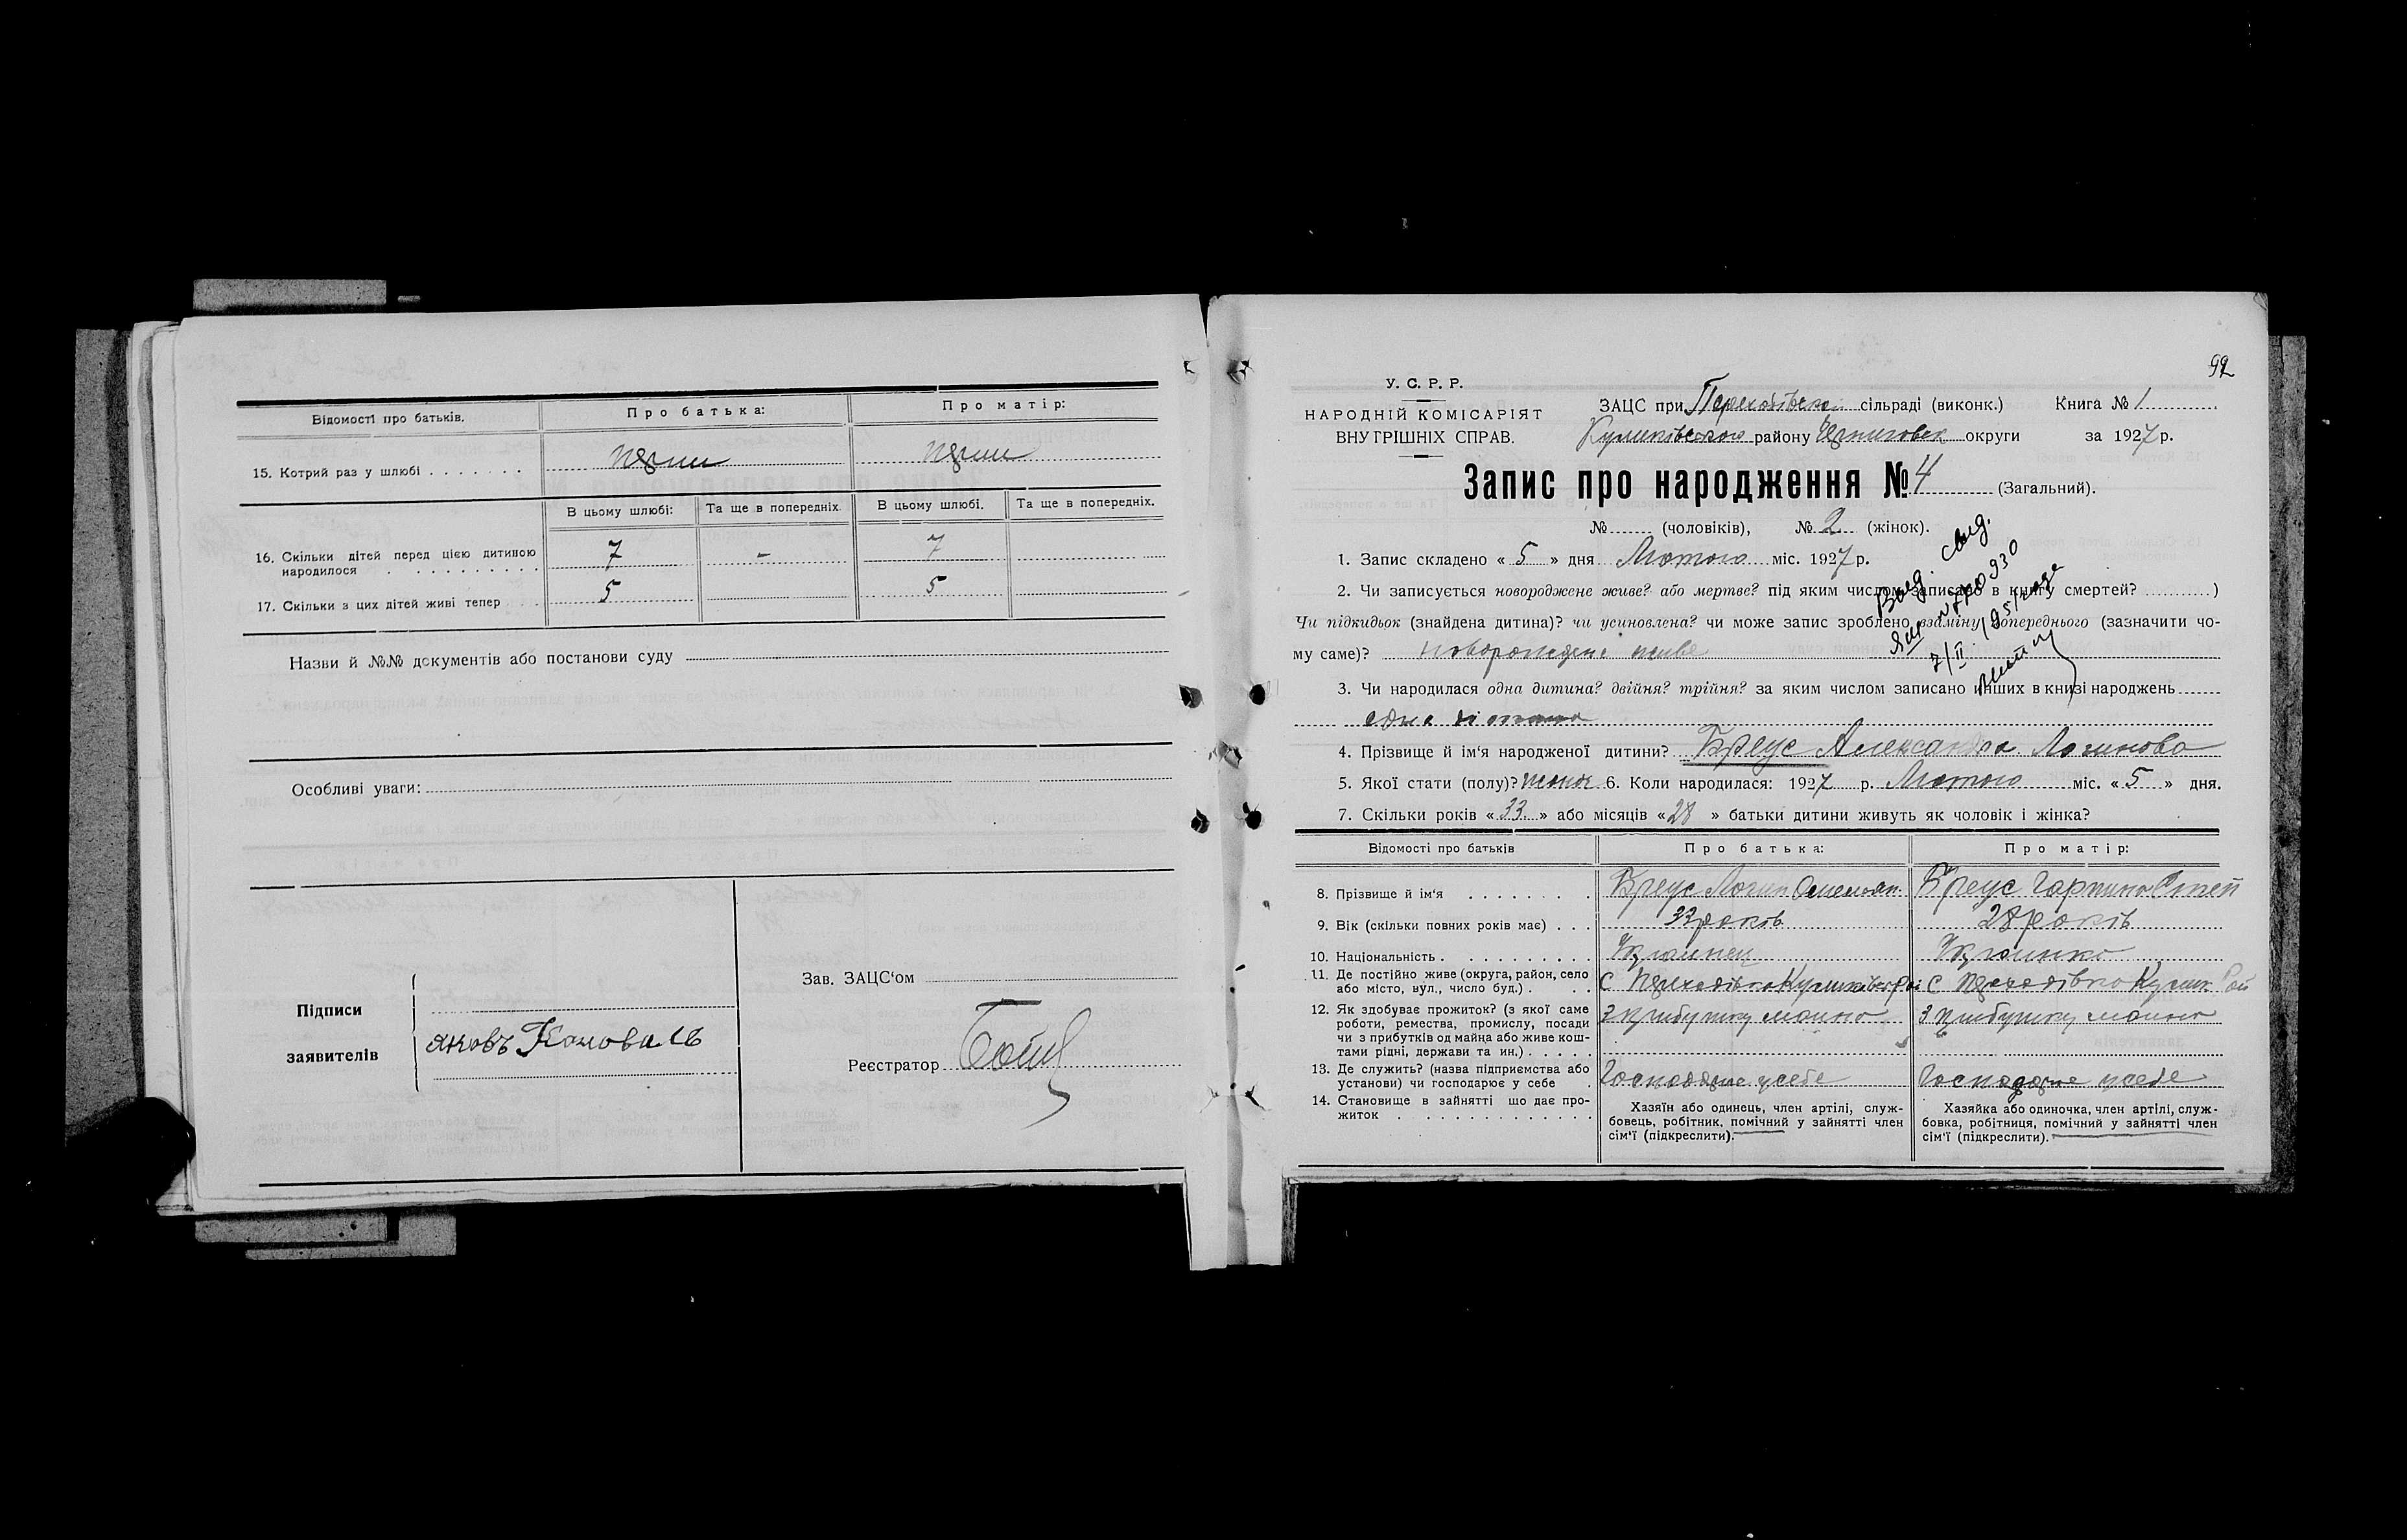 Відомості про батьків.
Про батька:
Про матір:
15. Котрий раз у шлюбі
перши
перши
В цьому шлюбі:
Та ще в попередніх.
В цьому шлюбі.
Та ще в попередніх.
16. Скільки дітей перед цією дитиною
народилося
7
-
7
17. Скільки з цих дітей живі тепер
5
5
Назви й №№ документів або постанови суду
Особливі уваги:
Підписи
заявителів
яковъ Коновалъ
Зав. ЗАЦС‘ом
Реєстратор
92
У. С. Р. Р.
НАРОДНІЙ КОМІСАРІЯТ
ВНУТРІШНІХ СПРАВ.
ЗАЦС при Переходівск сільраді (виконк.) Книга № 1
Куликівського району Черниговск округи за 1927 р.
Запис про народження № 4 (Загальний).
№ (чоловіків), № 2 (жінок).
1. Запис складено « 5 » дня Лютого міс. 1927 р.
2. Чи записується новороджене живе? або мертве? під яким числом записано в книгу смертей? )
Чи підкидьок (знайдена дитина)? чи усиновлена? чи може запис зроблено взаміну попереднього (зазначити чо-
му саме)? новорождене живе
Выд. свид.
7/II 1951 года
3. Чи народилася одна дитина? двійня? трійня? за яким числом записано инших в книзі народжень
одна дитина
4. Прізвище й ім‘я народженої дитини? Бреус Александра Логинова
5. Якої стати (полу)? жіноч 6. Коли народилася: 1927 р. Лютого міс. « 5 » дня.
7. Скільки років « 33 » або місяців « 28 » батьки дитини живуть як чоловік і жінка?
Відомості про батьків
Про батька:
Про матір:
8. Прізвище й ім‘я
Бреус Логин Омельян
Бреус Гарпина Степ
9. Вік (скільки повних років має)
33 років
28 років
10. Національність
Украинец
Украинка
11. Де постійно живе (округа, район, село
або місто, вул., число буд.)
с Переходівка Куликівск Рай
с Переходівка Кулик Рай
12. Як здобуває прожиток? (з якої саме
роботи, ремества, промислу, посади
чи з прибутків од майна або живе кош-
тами рідні, держави та ин.)
З прибутку майна
З прибутку майна
13. Де служить? (назва підприємства або
установи) чи господарює у себе
Господарює у себе
Господарює у себе
14. Становище в зайнятті що дає про-
житок
Хазяїн або одинець, член артілі, служ-
бовець, робітник, помічний у зайнятті член
сім‘ї (підкреслити).
Хазяйка або одиночка, член артілі, служ-
бовка, робітниця, помічний у зайнятті член
сім‘ї (підкреслити).